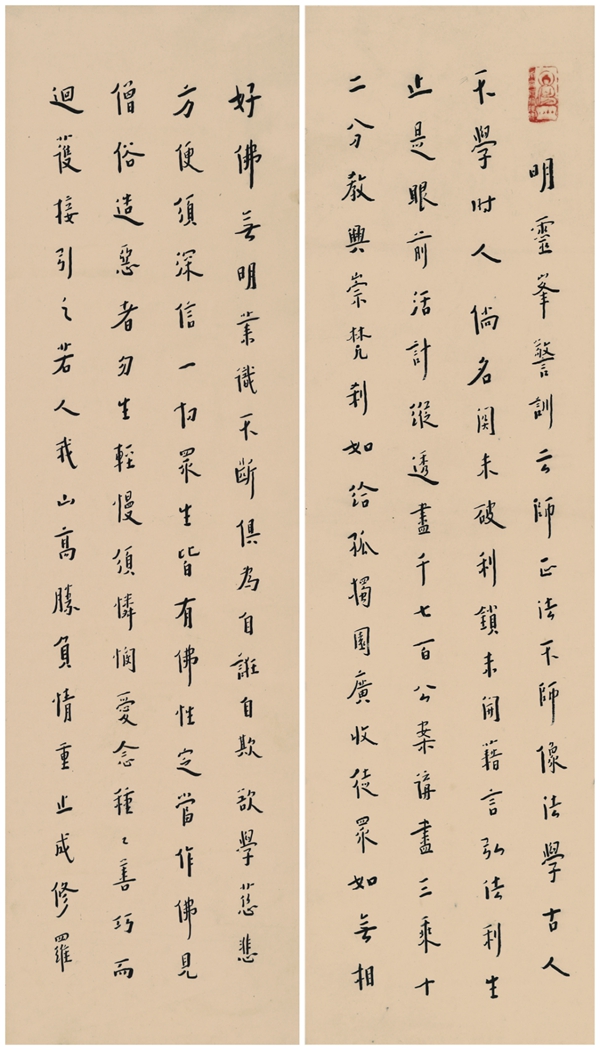 明靈峯警訓云師正法不師像法學古人
不學時人倘名關未破利鎖未開藉言弘法利生
止是眼前活計縱透盡千七百公案講盡三乘十
二分教興崇梵刹如給孤獨園廣收徒眾如無相
好佛無明業識不斷俱為自誑自欺欲學慈悲
方便須深信一切眾生皆有佛性定當作佛見
僧俗造惡者勿生輕慢須憐憫愛念種〻善巧而
迴護接引之若人我山高勝負情重止成修羅